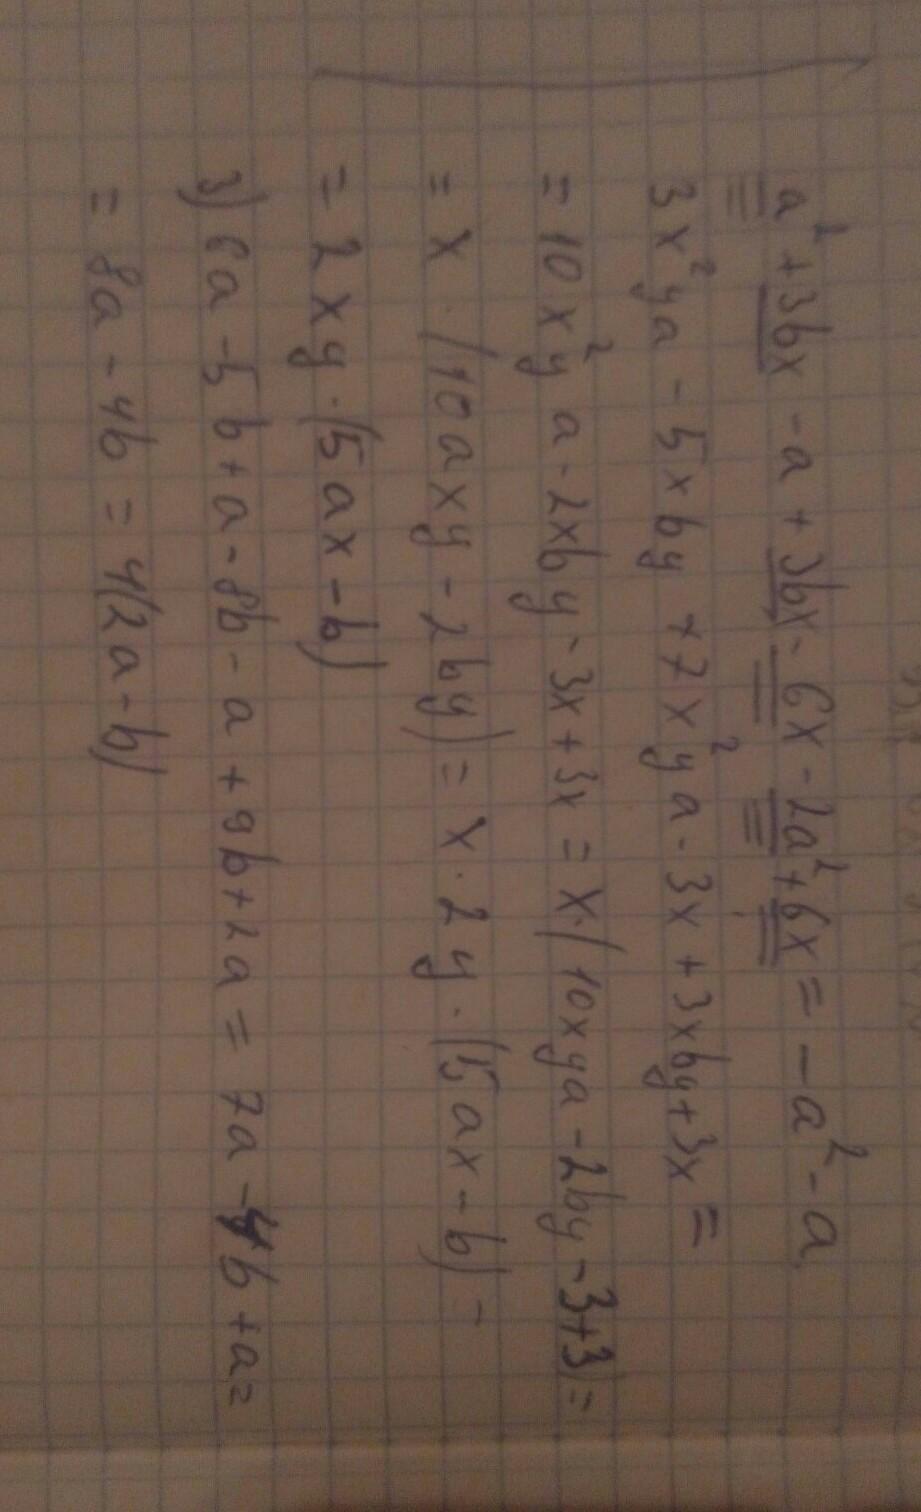 a² + 3bx - a + 3bx - 6x - 2a² + 6x = - a² - a
3x²ya - 5xby + 7x²ya - 3x + 3xby + 3x =
= 10x²ya - 2xby - 3x + 3x = x·(10xya - 2by - 3+3) =
= x·(10axy - 2by) = x·2y·(5ax - b) =
= 2xy·(5ax - b)
3) 6a - 5b + a - 8b - a + 9b + 2a = 7a - 4b + a =
= 8a - 4b = 4(2a - b)